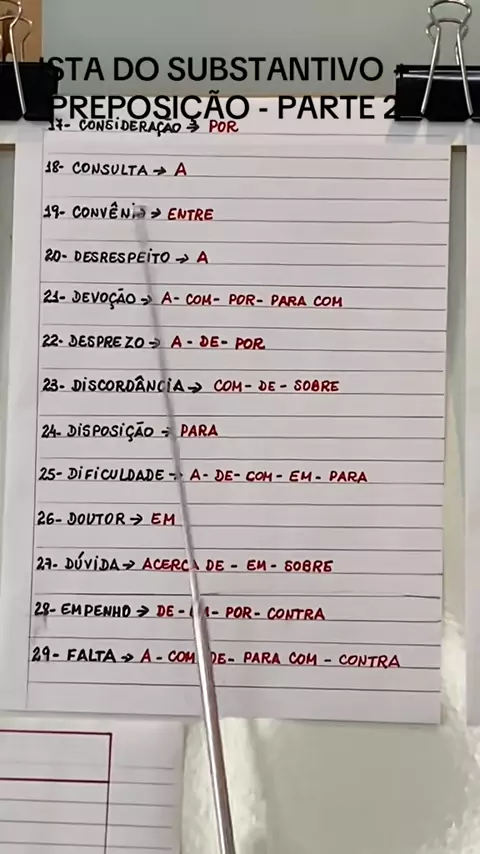 STA DO SUBSTANTIVO -
PREPOSIÇÃO - PARTE 2
17- CONSIDERAÇÃO → POR
18- CONSULTA → A
19- CONVÊNIO → ENTRE
20- DESRESPEITO → A
21- DEVOÇÃO → A - COM - POR - PARA COM
22- DESPREZO → A - DE - POR
23- DISCORDÂNCIA → COM - DE - SOBRE
24- DISPOSIÇÃO → PARA
25- DIFICULDADE → A - DE - COM - EM - PARA
26- DOUTOR → EM
27- DÚVIDA → ACERCA DE - EM - SOBRE
28- EMPENHO → DE - EM - POR - CONTRA
29- FALTA → A - COM DE - PARA COM - CONTRA